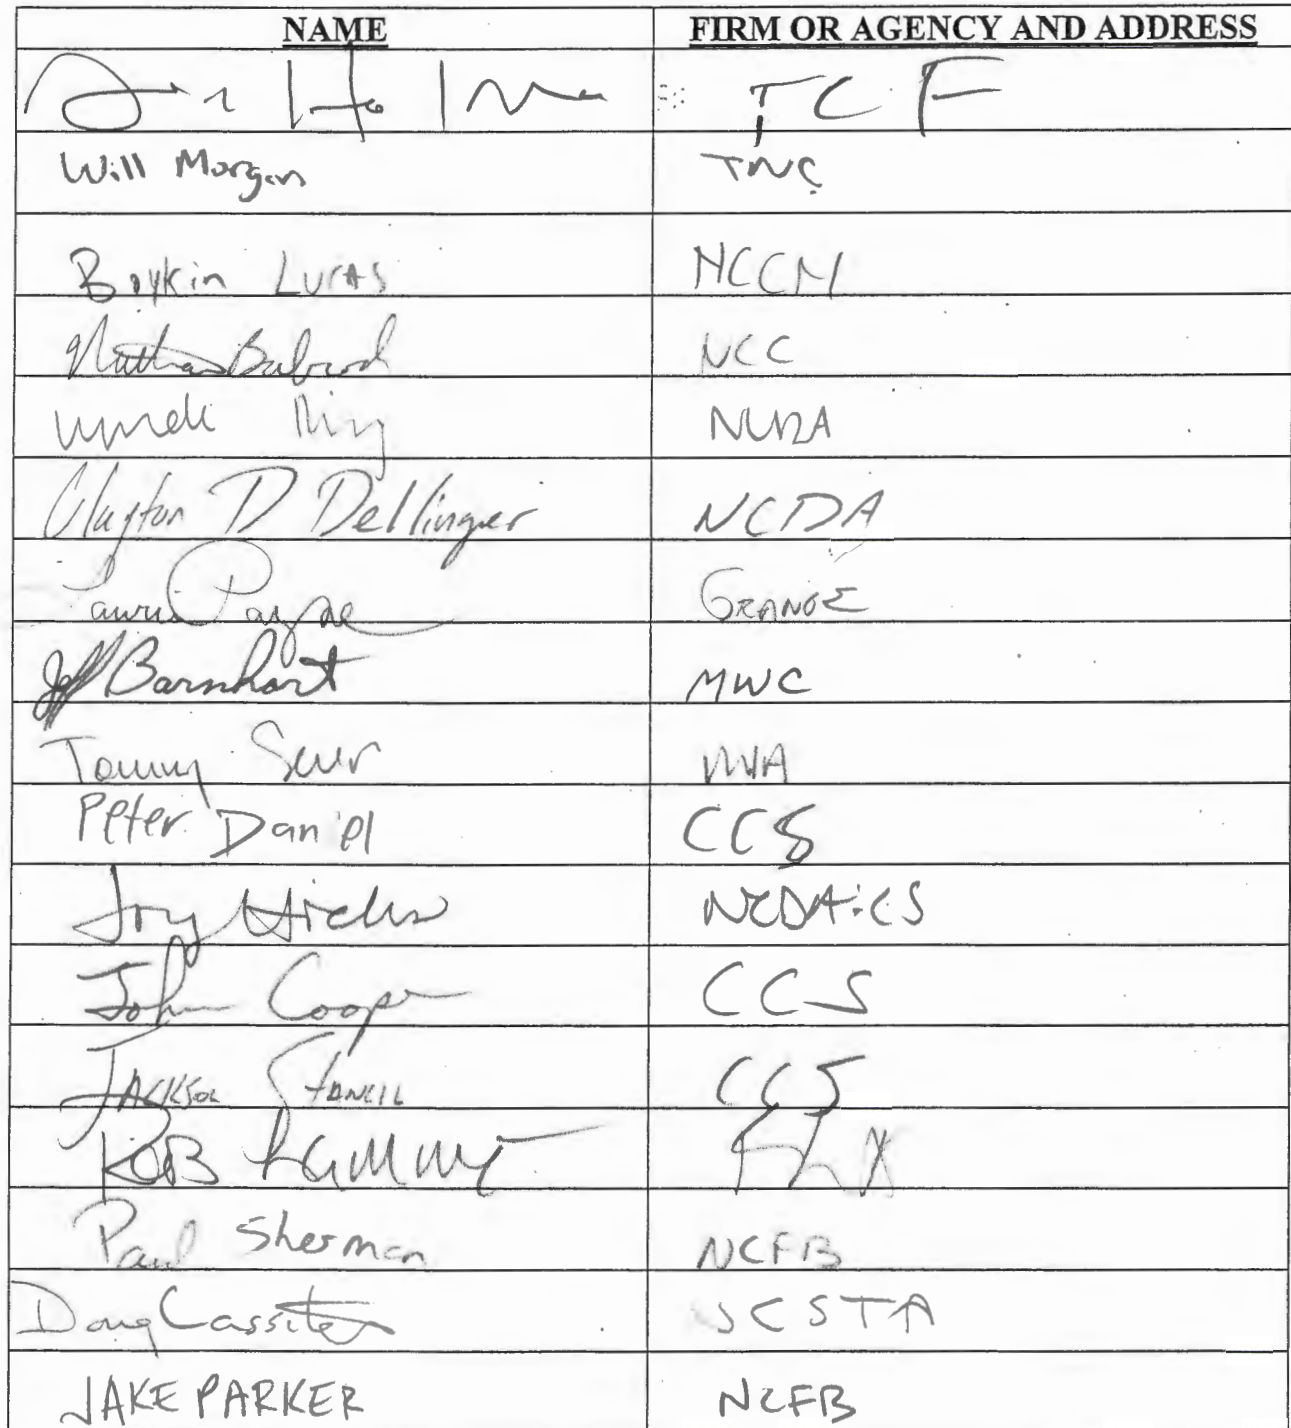 NAME FIRM OR AGENCY AND ADDRESS
TCF
Will Morgan TNC
Boykin Lucas NCCM
Nathan Babcock NCC
Clayton D Dellinger NCDA
Payne GRANGE
Jeff Barnhart MWC
Tommy
Peter Daniel CCS
Joy Hicks NCDA&CS
John Cooper CCS
JACKSON STANCIL CCS
ROB
Paul Sherman NCFB
Doug Lassiter NCSTA
JAKE PARKER NCFB